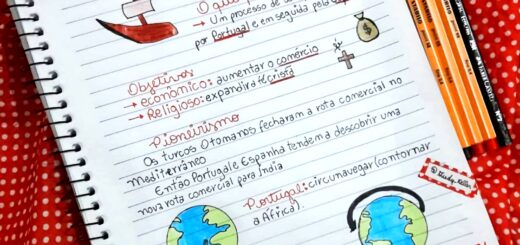 → Um processo de
por Portugal e em seguida pela
Objetivos
→ econômico: aumentar o comércio
→ Religioso: expandir a fé cristã
Pioneirismo
Os turcos Otomanos fecharam a rota comercial no
mediterrâneo
Então Portugal e Espanha tendem a descobrir uma
nova rota comercial para Índia
Portugal: circunavegar (contornar
a África).